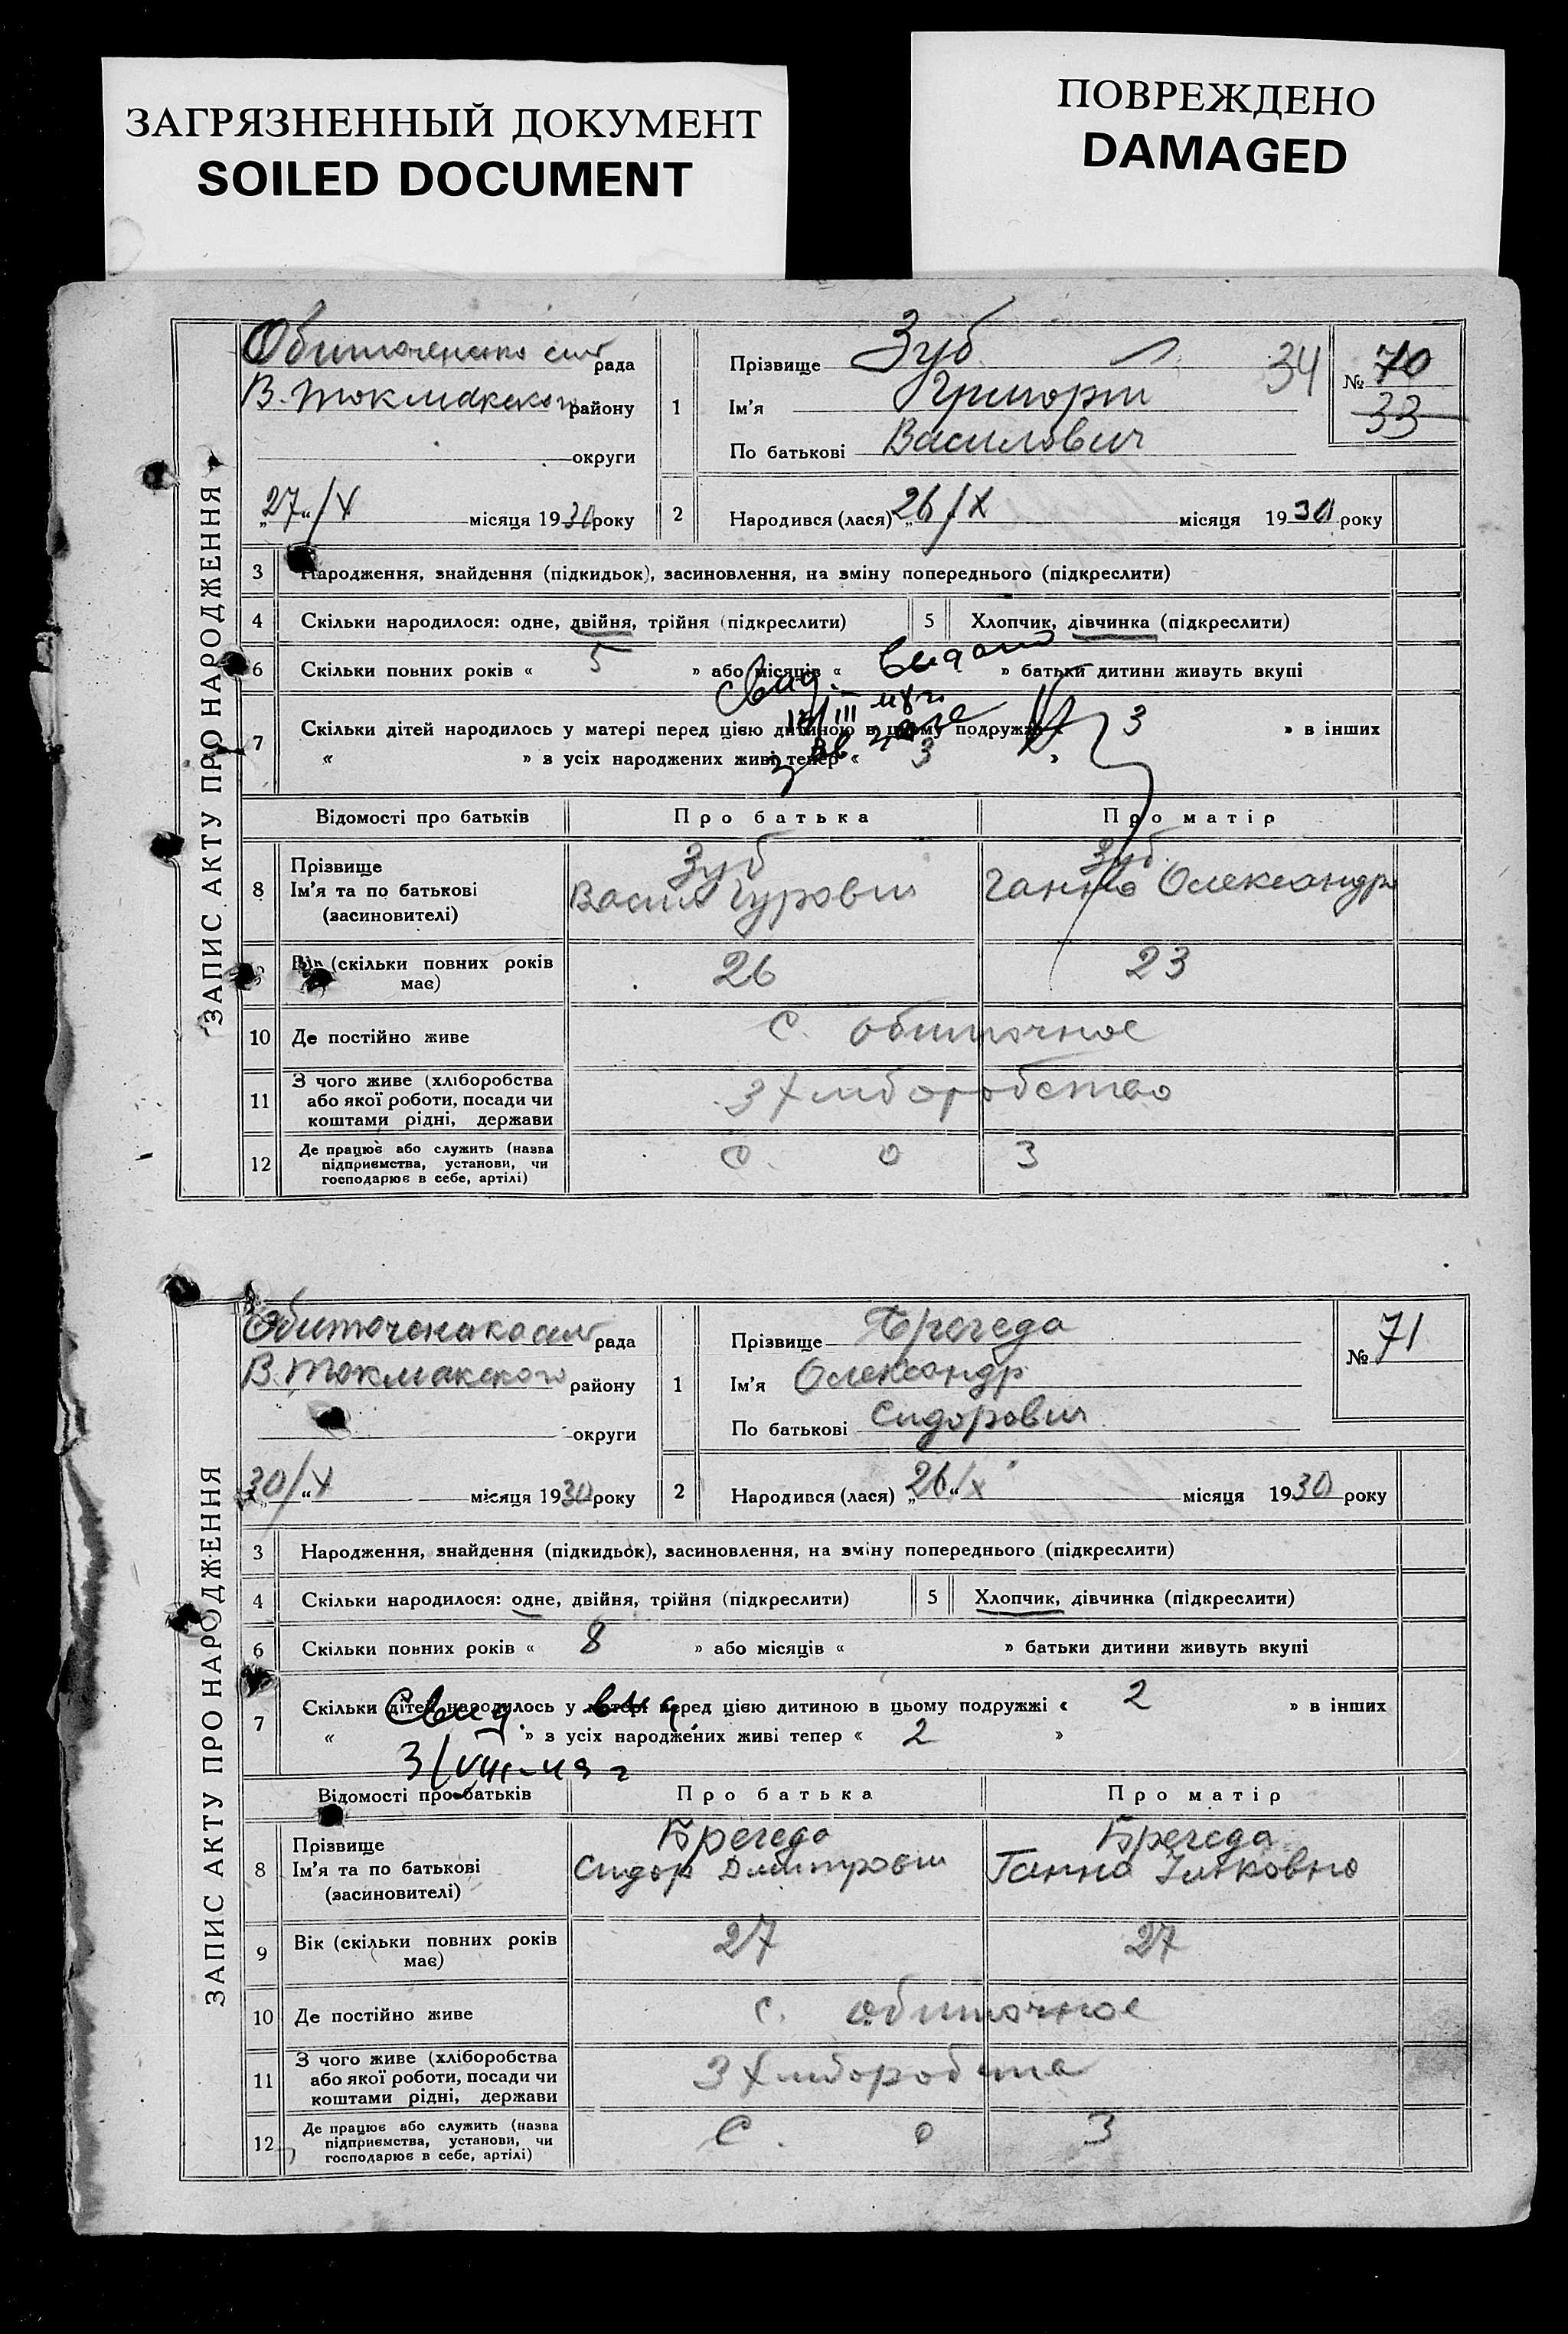 ЗАГРЯЗНЕННЫЙ ДОКУМЕНТ
SOILED DOCUMENT
ПОВРЕЖДЕНО
DAMAGED
ЗАПИС АКТУ ПРО НАРОДЖЕННЯ
рада
В. Токмакского району
округи
„27“/X місяця 1930 року
1
Прізвище Зуб 34
Ім'я Григорій
По батькові Василович
№ 70
33
2 Народився (лася) „26/X місяця 1930 року
3 Народження, знайдення (підкидьок), засиновлення, на зміну попереднього (підкреслити)
4 Скільки народилося: одне, двійня, трійня (підкреслити) 5 Хлопчик, дівчинка (підкреслити)
6 Скільки повних років « 5 » або місяців « » батьки дитини живуть вкупі
Свид. видано
7 Скільки дітей народилось у матері перед цією дитиною в цьому подружжі « 3 » в інших
« » з усіх народжених живі тепер « 3 »
Відомості про батьків Про батька Про матір
8 Прізвище Зуб Зуб
Ім'я та по батькові Васил Гурович Ганна Олександр
(засиновителі)
9 Вік (скільки повних років має) 26 23
10 Де постійно живе с. Обиточное
11 З чого живе (хліборобства
або якої роботи, посади чи
коштами рідні, держави
З хліборобство
12 Де працює або служить (назва
підприємства, установи, чи
господарює в себе, артілі)
С. О З
ЗАПИС АКТУ ПРО НАРОДЖЕННЯ
рада
В. Токмакского району
округи
30/“X місяця 1930 року
1
Прізвище Брегеда
Ім'я Олександр
По батькові Сидорович
№ 71
2 Народився (лася) „26/“X місяця 1930 року
3 Народження, знайдення (підкидьок), засиновлення, на зміну попереднього (підкреслити)
4 Скільки народилося: одне, двійня, трійня (підкреслити) 5 Хлопчик, дівчинка (підкреслити)
6 Скільки повних років « 8 » або місяців « » батьки дитини живуть вкупі
7 Скільки дітей народилось у матері перед цією дитиною в цьому подружжі « 2 » в інших
Свид. выд.
« » з усіх народжених живі тепер « 2 »
3/VIII-49 г
Відомості про батьків Про батька Про матір
8 Прізвище Брегеда Брегеда
Ім'я та по батькові Сидор Дмитрович Ганна
(засиновителі)
9 Вік (скільки повних років має) 27 27
10 Де постійно живе с. Обиточное
11 З чого живе (хліборобства
або якої роботи, посади чи
коштами рідні, держави
12 Де працює або служить (назва
підприємства, установи, чи
господарює в себе, артілі)
С. О З